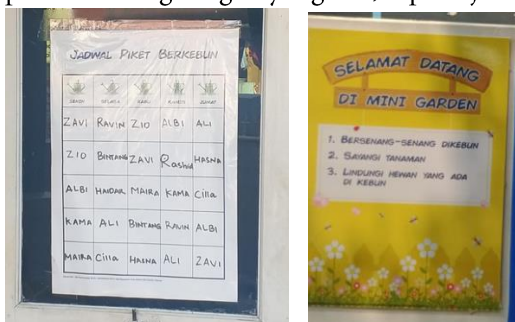 JADWAL PIKET BERKEBUN
SENIN SELASA RABU KAMIS JUMAT
ZAVI RAVIN ZIO ALBI ALI
ZIO BINTANG ZAVI Rashid HASNA
ALBI HAIDAR MAIRA KAMA Cilla
KAMA ALI BINTANG RAVIN ALBI
MAIRA Cilla HASNA ALI ZAVI
SELAMAT DATANG
DI MINI GARDEN
1. BERSENANG-SENANG DIKEBUN
2. SAYANGI TANAMAN
3. LINDUNGI HEWAN YANG ADA
DI KEBUN